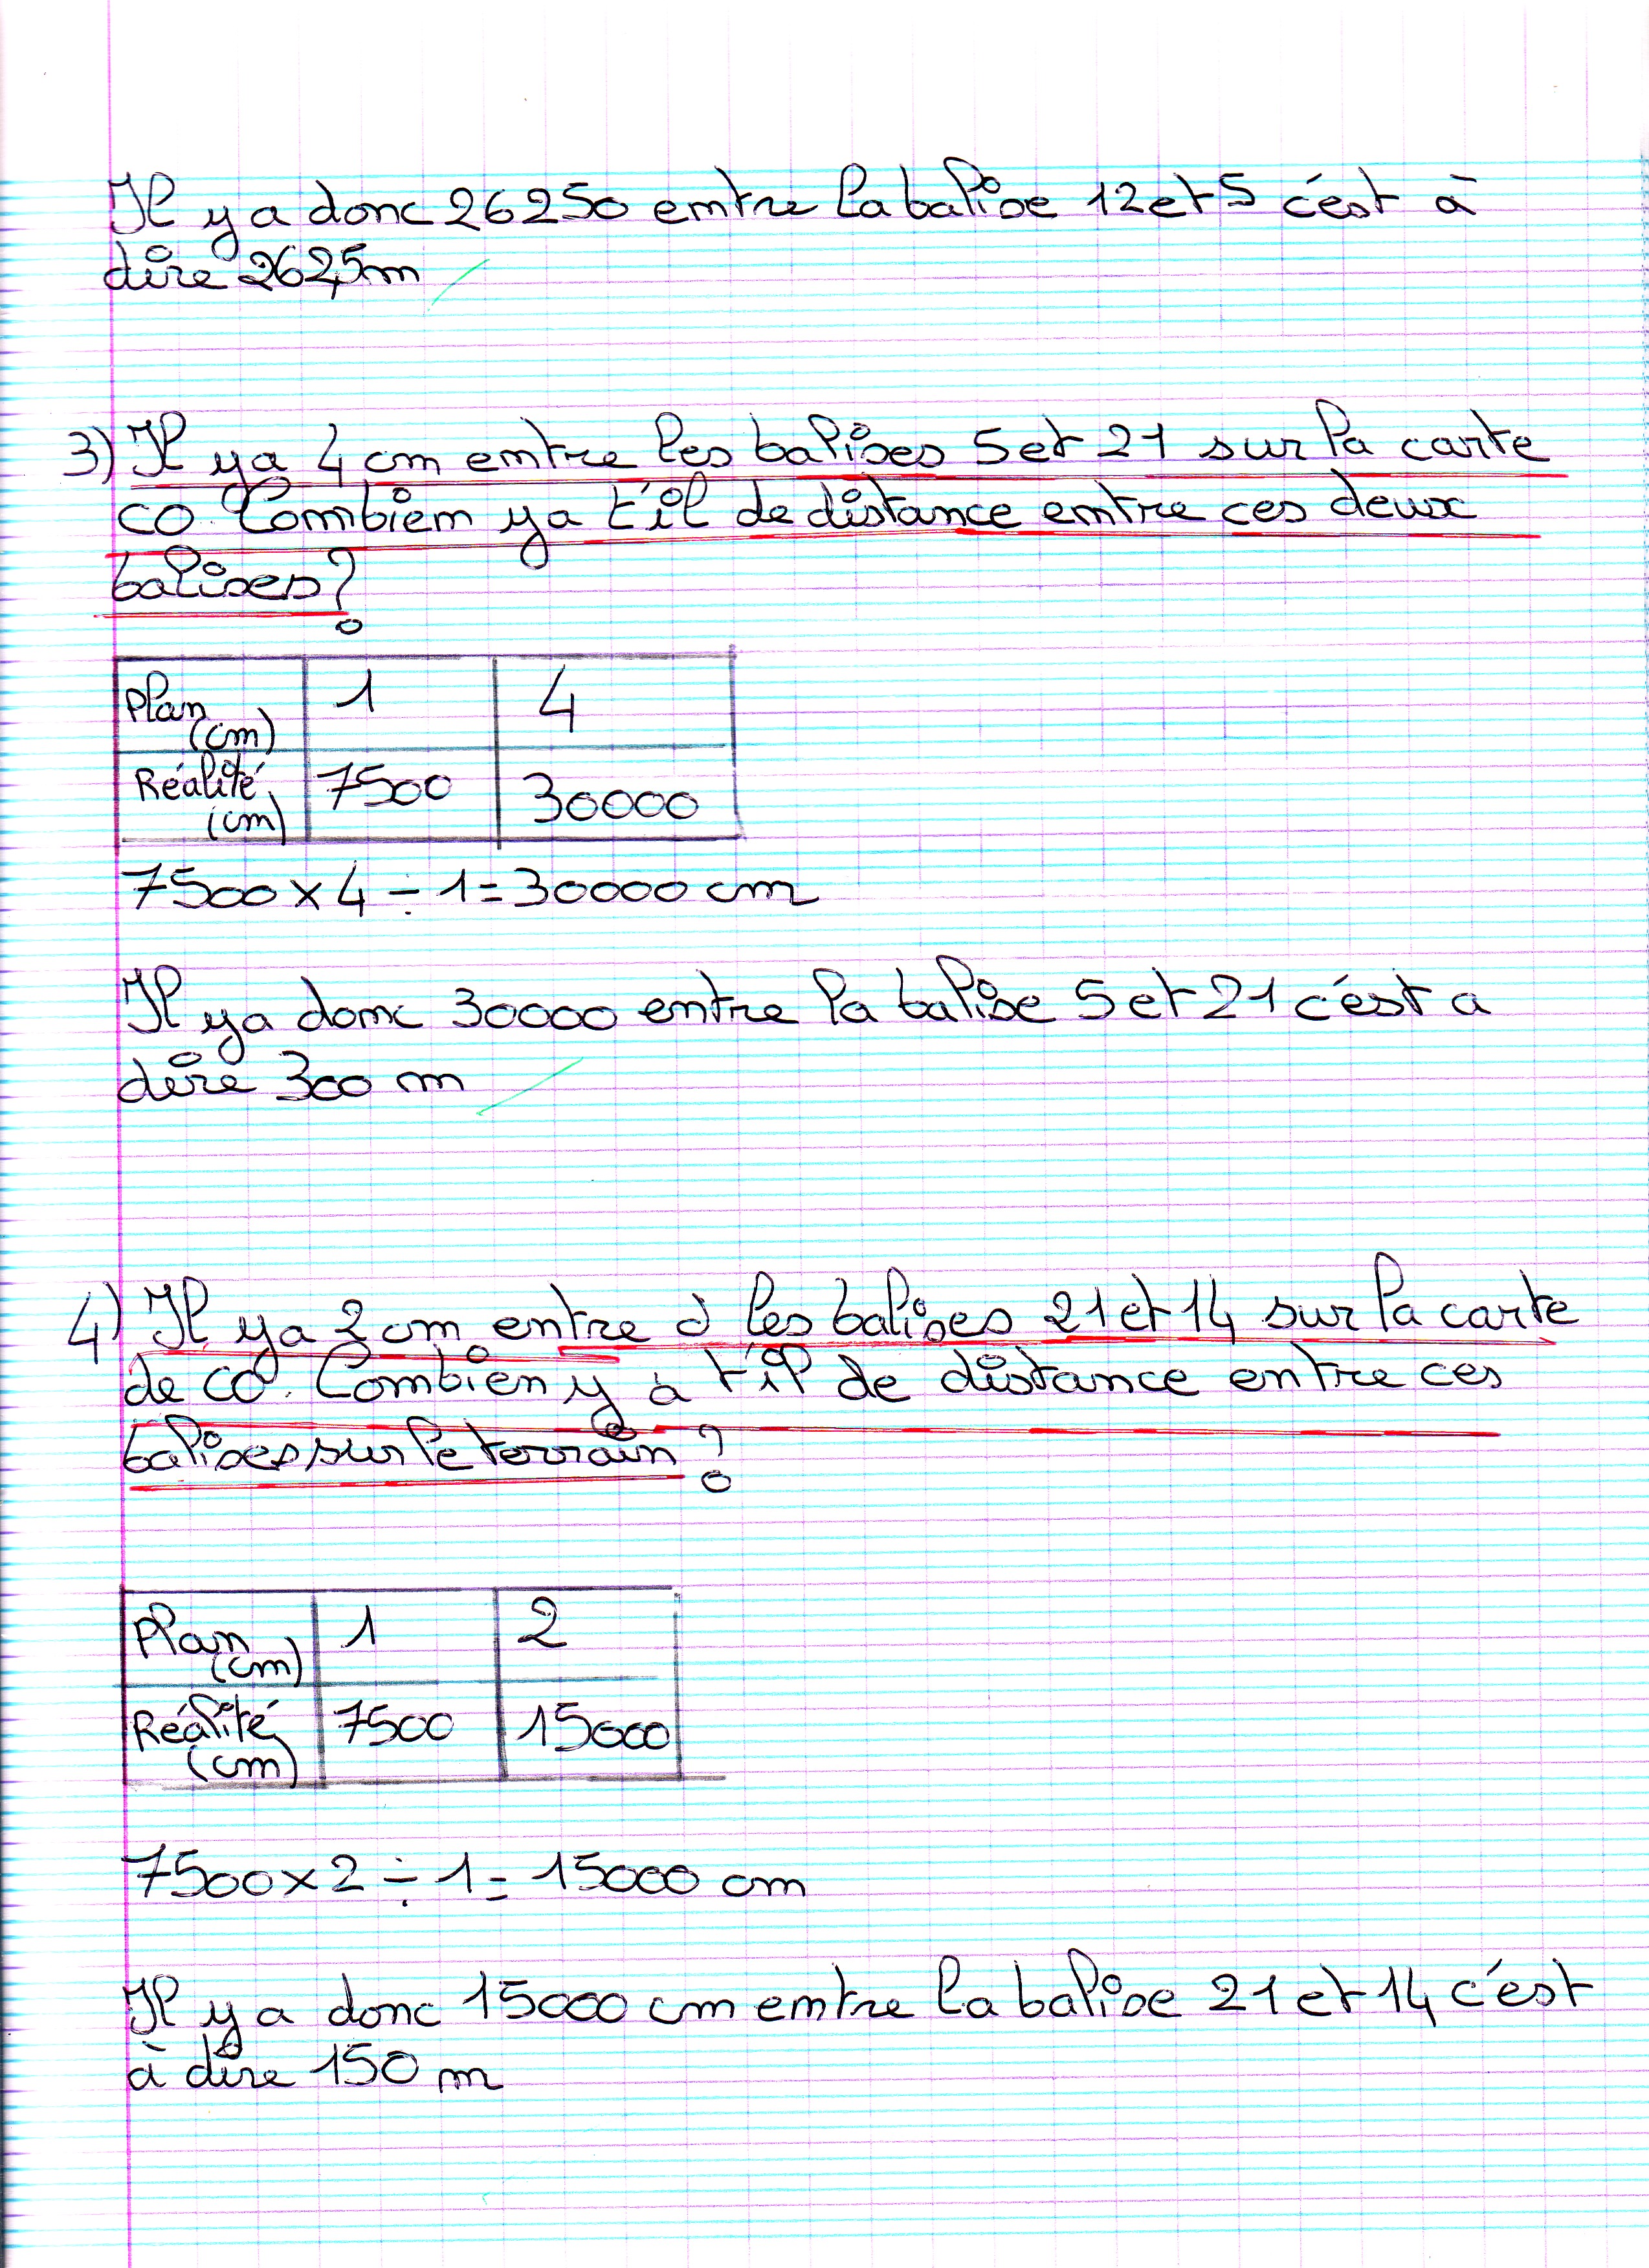 Il y a donc 26250 entre la balise 12 et 5 c'est à
dire 262,5m
3) Il y a 4 cm entre les balises 5 et 21 sur la carte
CO. Combien y a t'il de distance entre ces deux
balises?
Plan (cm) 1 4
Réalité (cm) 7500 30000
7500 x 4 ÷ 1 = 30000 cm
Il y a donc 30000 entre la balise 5 et 21 c'est a
dire 300 m
4) Il y a 2 cm entre d les balises 21 et 14 sur la carte
de CO. Combien y a t'il de distance entre ces
balises sur le terrain?
Plan (cm) 1 2
Réalité (cm) 7500 15000
7500 x 2 ÷ 1 = 15000 cm
Il y a donc 15000 cm entre la balise 21 et 14 c'est
à dire 150 m